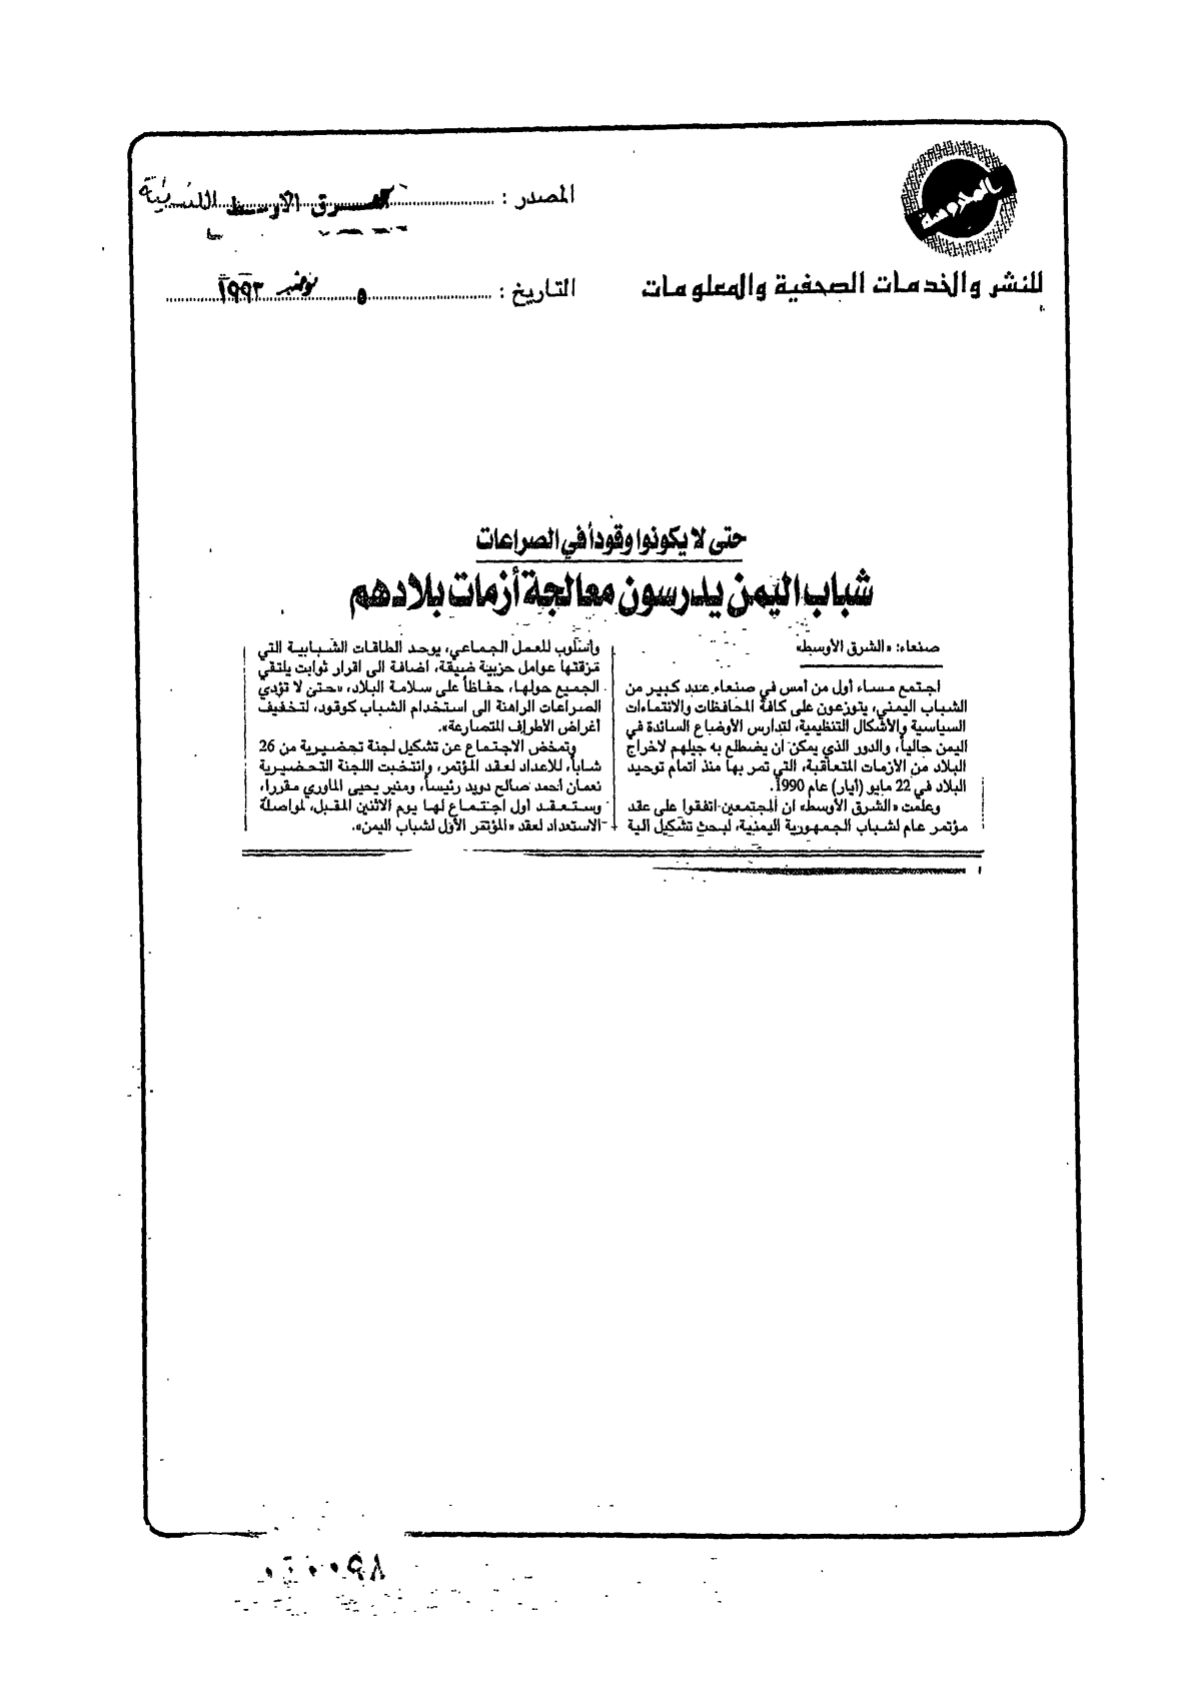 المصدر : الشرق الأوسط اللندنية
للنشر والخدمات الصحفية والمعلومات
التاريخ : ٥ نوفمبر ١٩٩٣
حتى لا يكونوا وقوداً في الصراعات
شباب اليمن يدرسون معالجة أزمات بلادهم
صنعاء: «الشرق الأوسط»
اجتمع مساء أول من أمس في صنعاء عدد كبير من
الشباب اليمني، يتوزعون على كافة المحافظات والانتماءات
السياسية والأشكال التنظيمية، لتدارس الأوضاع السائدة في
اليمن حالياً، والدور الذي يمكن ان يضطلع به جيلهم لاخراج
البلاد من الازمات المتعاقبة، التي تمر بها منذ اتمام توحيد
البلاد في 22 مايو (أيار) عام 1990.
وعلمت «الشرق الأوسط» ان المجتمعين اتفقوا على عقد
مؤتمر عام لشباب الجمهورية اليمنية، لبحث تشكيل الية
وأسلوب للعمل الجماعي، يوحد الطاقات الشبابية التي
مزقتها عوامل حزبية ضيقة، اضافة الى اقرار ثوابت يلتقي
الجميع حولها، حفاظاً على سلامة البلاد، «حتى لا تؤدي
الصراعات الراهنة الى استخدام الشباب كوقود، لتخفيف
أغراض الأطراف المتصارعة».
وتمخض الاجتماع عن تشكيل لجنة تحضيرية من 26
شاباً، للاعداد لعقد المؤتمر، وانتخبت اللجنة التحضيرية
نعمان أحمد صالح دويد رئيساً، ومنير يحيى الماوري مقررا،
وستعقد أول اجتماع لها يوم الاثنين المقبل، لمواصلة
الاستعداد لعقد «المؤتمر الأول لشباب اليمن».